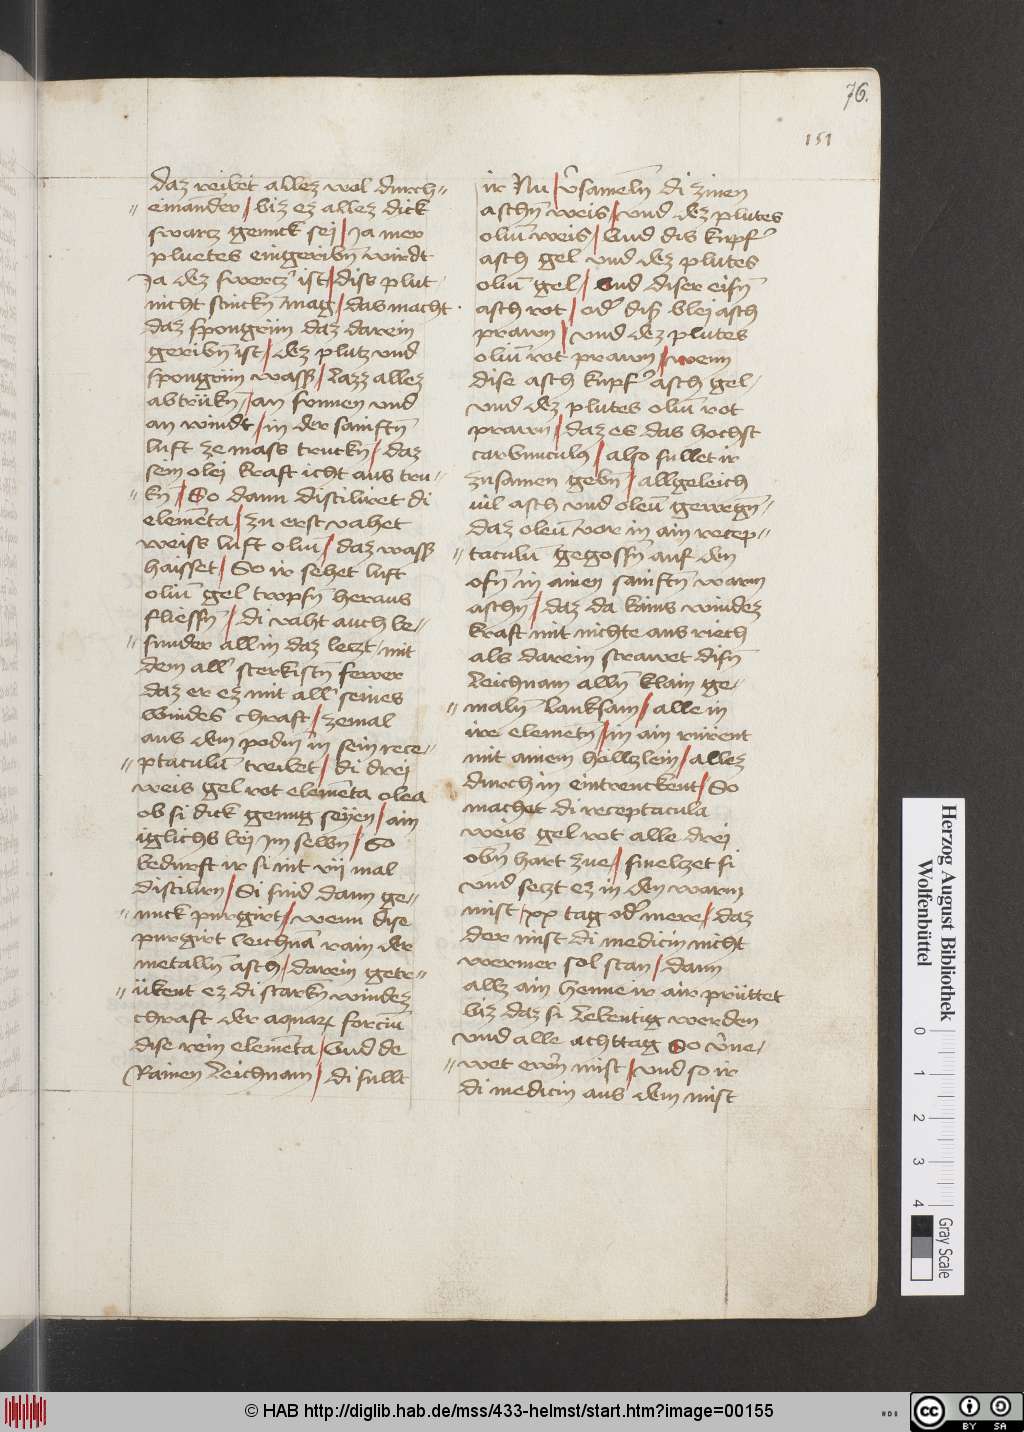 76.
151
daz reibet allez wol durch=
einander / biz ez allez dick
swartz genuck sei / Ja mer
pluetes eingeribn̄ wirdt
Ja dez swercz' ist / diss plut
nicht stinckn̄ mag / das macht
daz spongrün daz darein
geribn̄ ist / dez plutz vnd
spongrün wass' / lazz allez
abtrükn̄ / an sunnen vnd
an windt / in der sainftn̄
luft ze mass truckn̄ / daz
sein olej kraft icht aus tru=
kn̄ / So dann distiliret di
elemēta / zu erst vahet
weiss luft oliū / daz wass'
haisset / So ir sehet luft
oliū gel tropfn̄ heraus
fliessn̄ / di vaht auch be=
sunder all in daz leczt / mit
dem all' sterkistn̄ fewer
daz er ez mit all' seines
windes chraft / zemal
aus dem podm̄ in sein rece=
ptaculū treibet / di drej
weis gel rot elemēta olea
ob si dick genug seyen / ain
iglichs bej Im selbn̄ / So
bedurft ir si nit vij mal
distilirn / Si sind dann ge=
nuck purgirt / wenn dise
purgirt leichnā rain der
metalln̄ asch / darein getr=
ükent ez di starkn̄ windez
chraft der aquarꝝ forciū
dise rein elemēta / Vnd de
Rainen leichnam / di füllt
ir Nu / v̄sameln̄ di zinen
aschn̄ weis / vnd dez plutes
oliū weis / Vnd dis kupf'
asch gel vnd dez plutes
oliū gel / Vnd diser eisn̄
asch rot / od' diß blej asch
prawn / vnd dez plutes
oliū rot prawn / wenn
dise asch kupf' asch gel /
vnd dez plutes oliū rot
prawn / daz es das hochst
carbunculꝰ / also füllet ir
zusamen gebn̄ / allgeleich
vil asch vnd oleū gewegn̄ /
daz oleū vor in ain recep=
taculū gegossn̄ auf den
ofn̄ in ainen sainftn̄ warm
aschn̄ / daz da kains windez
kraft mit nichte aus riech
als darein strawet disn̄
leichnam alln̄ klain ge=
maln̄ lanksam / alle in
irr elemētn̄ / in ain rürent
mit ainem hölczlein / allez
durch in eintrenckent / So
machet di receptacula
weis gel rot alle drej
obn̄ hart zue / smelzet si
vnd seczt ez in den warm
mist / xx tag od' mere / daz
der mist di medicin nicht
wermer sol stan / dann
allz ain henne ir air prüttet
biz daz si lebentig werden
vnd alle achttag So v̄ne=
wet ew̄n mist / vnd so ir
di medicin aus dem mist
Herzog August Bibliothek
Wolfenbüttel
0 1 2 3 4
Gray Scale
© HAB http://diglib.hab.de/mss/433-helmst/start.htm?image=00155
cc BY SA